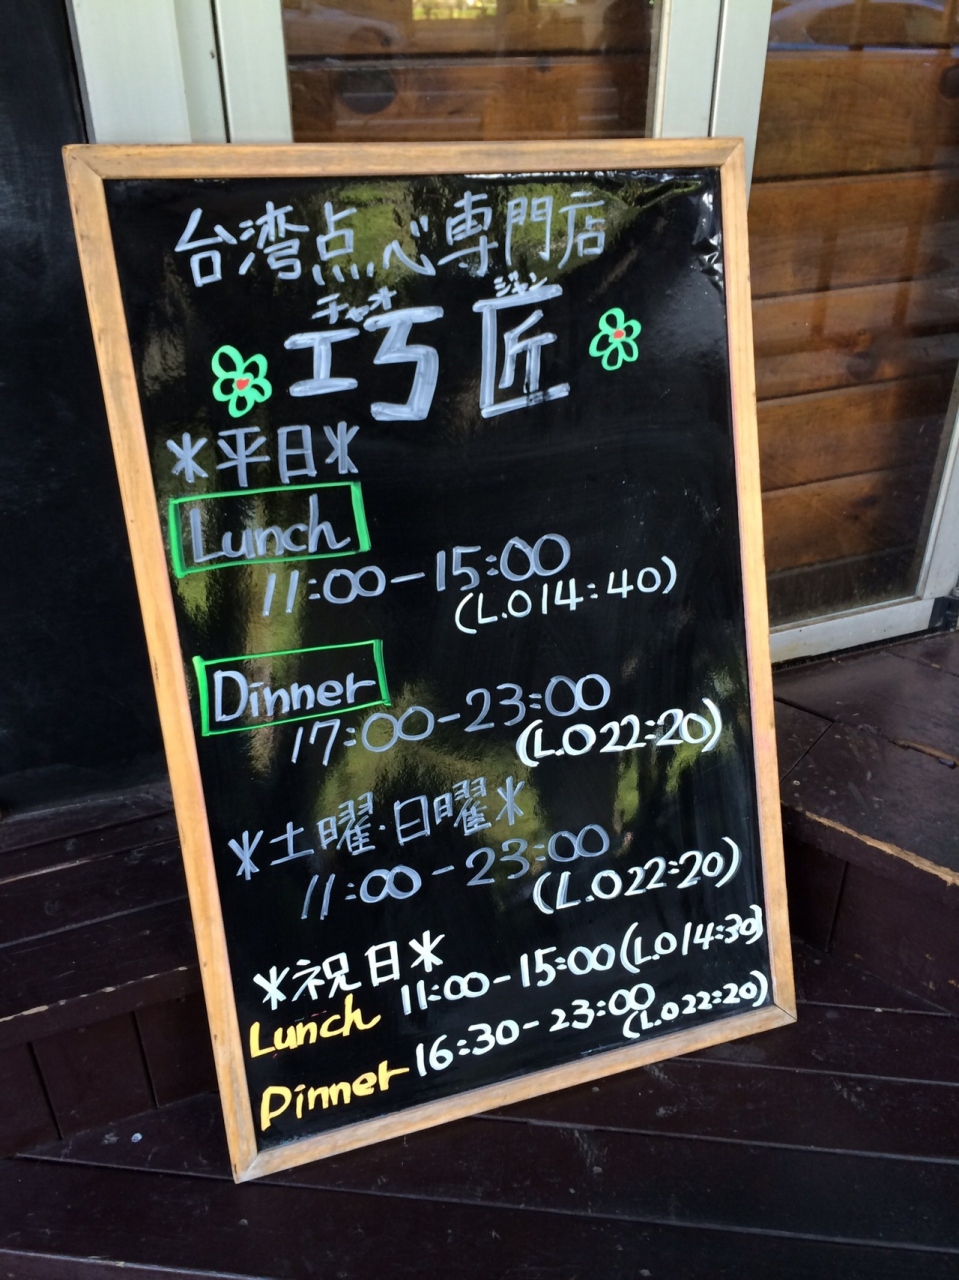 台湾点心専門店
チャオ ジャン
巧匠
*平日*
Lunch
11:00-15:00
(L.O 14:40)
Dinner
17:00-23:00
(L.O 22:20)
*土曜・日曜*
11:00-23:00
(L.O 22:20)
*祝日*
Lunch 11:00-15:00 (L.O 14:30)
Dinner 16:30-23:00 (L.O 22:20)